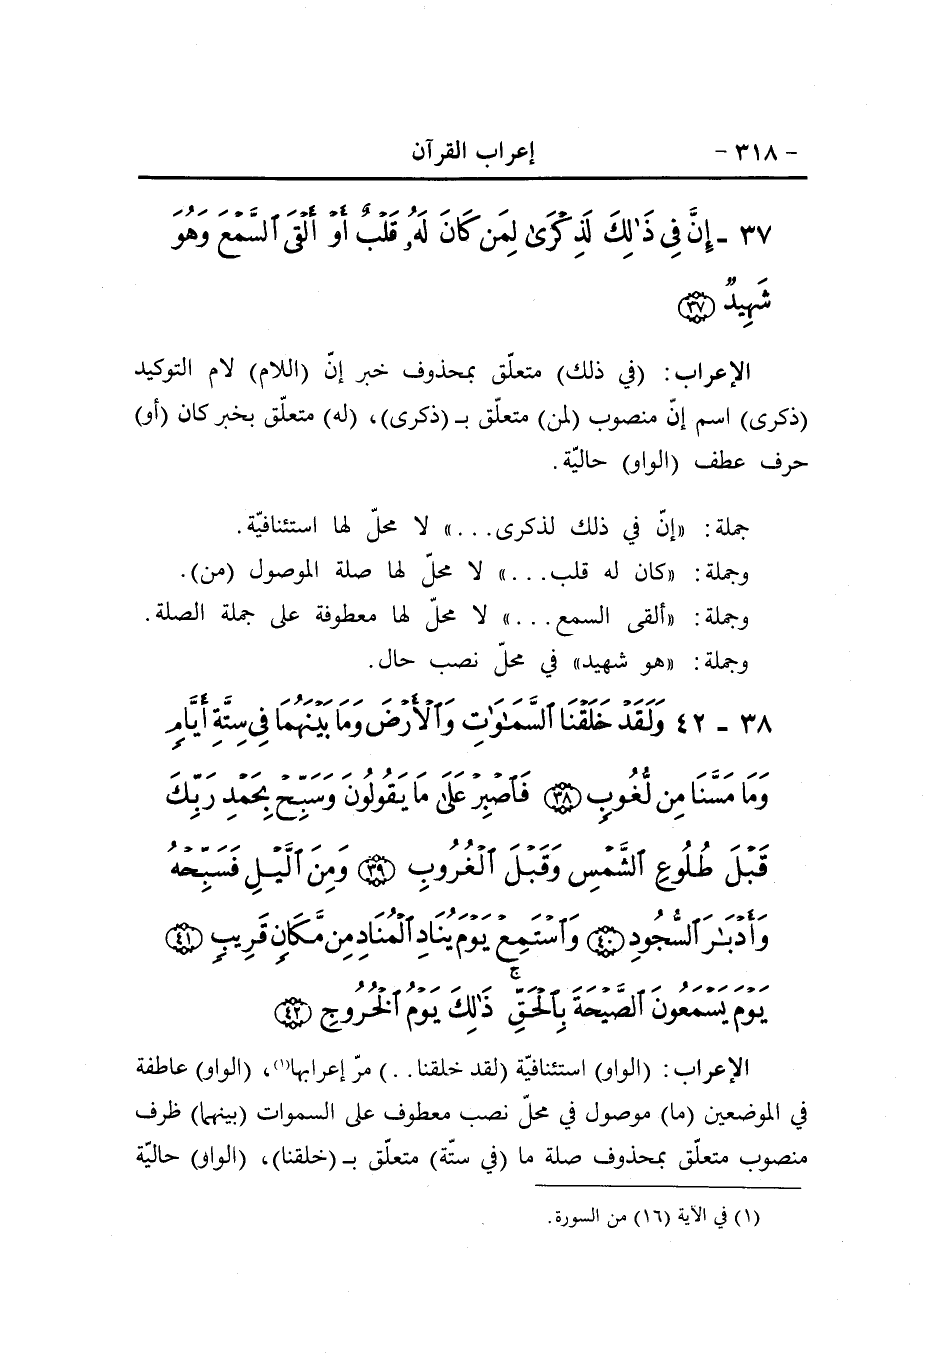 - ٣١٨ - إعراب القرآن
٣٧ - إِنَّ فِى ذَٰلِكَ لَذِكْرَىٰ لِمَن كَانَ لَهُۥ قَلْبٌ أَوْ أَلْقَى ٱلسَّمْعَ وَهُوَ
شَهِيدٌ ﴿٣٧﴾
الإعراب: (في ذلك) متعلّق بمحذوف خبر إنّ (اللام) لام التوكيد
(ذكرى) اسم إنّ منصوب (لمن) متعلّق بـ (ذكرى)، (له) متعلّق بخبر كان (أو)
حرف عطف (الواو) حاليّة.
جملة: «إنّ في ذلك لذكرى...» لا محلّ لها استئنافيّة.
وجملة: «كان له قلب...» لا محلّ لها صلة الموصول (من).
وجملة: «ألقى السمع...» لا محلّ لها معطوفة على جملة الصلة.
وجملة: «هو شهيد» في محلّ نصب حال.
٣٨ - ٤٢ وَلَقَدْ خَلَقْنَا ٱلسَّمَٰوَٰتِ وَٱلْأَرْضَ وَمَا بَيْنَهُمَا فِى سِتَّةِ أَيَّامٍ
وَمَا مَسَّنَا مِن لُّغُوبٍ ﴿٣٨﴾ فَٱصْبِرْ عَلَىٰ مَا يَقُولُونَ وَسَبِّحْ بِحَمْدِ رَبِّكَ
قَبْلَ طُلُوعِ ٱلشَّمْسِ وَقَبْلَ ٱلْغُرُوبِ ﴿٣٩﴾ وَمِنَ ٱلَّيْلِ فَسَبِّحْهُ
وَأَدْبَٰرَ ٱلسُّجُودِ ﴿٤٠﴾ وَٱسْتَمِعْ يَوْمَ يُنَادِ ٱلْمُنَادِ مِن مَّكَانٍ قَرِيبٍ ﴿٤١﴾
يَوْمَ يَسْمَعُونَ ٱلصَّيْحَةَ بِٱلْحَقِّ ۚ ذَٰلِكَ يَوْمُ ٱلْخُرُوجِ ﴿٤٢﴾
الإعراب: (الواو) استئنافيّة (لقد خلقنا..) مرّ إعرابها(١)، (الواو) عاطفة
في الموضعين (ما) موصول في محلّ نصب معطوف على السموات (بينهما) ظرف
منصوب متعلّق بمحذوف صلة ما (في ستّة) متعلّق بـ (خلقنا)، (الواو) حاليّة
(١) في الآية (١٦) من السورة.